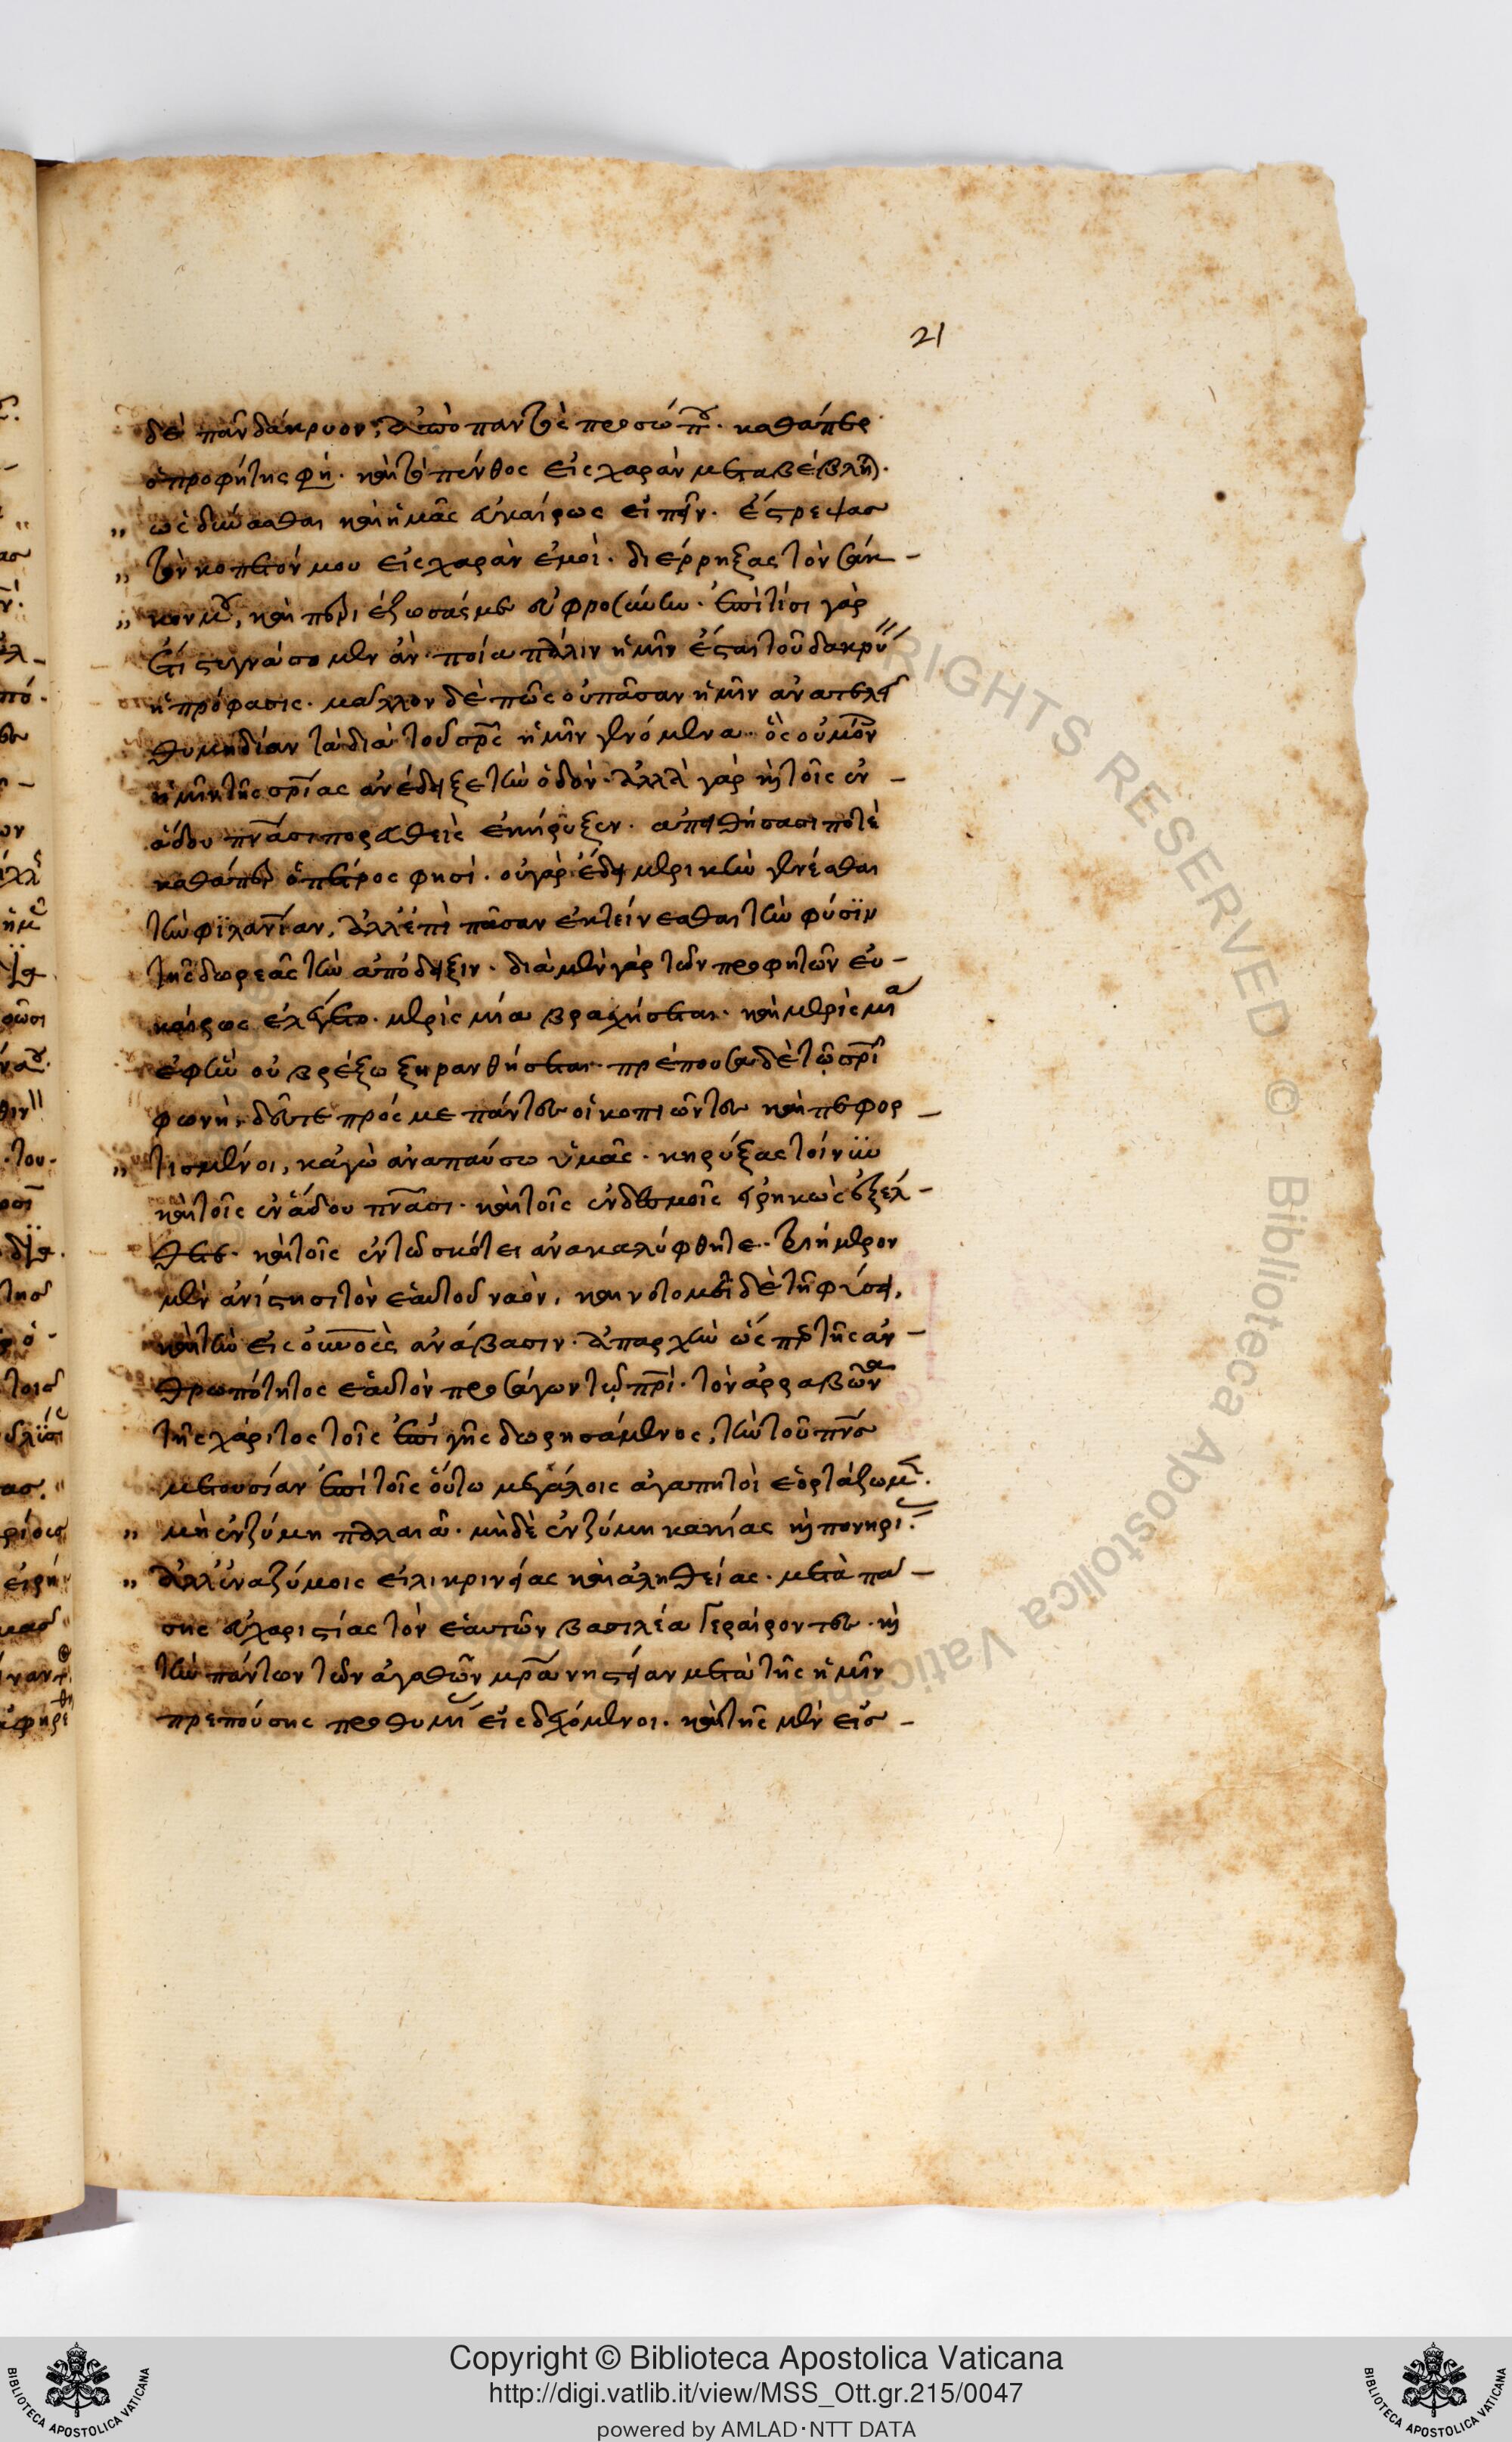 21
δὲ πᾶν δάκρυον, ἀπὸ παντὸς προσώπου. καθάπερ
ὁ προφήτης φη. καὶ τὸ πένθος εἰς χαρὰν μεταβέβλη.
„ ὡς δύνασθαι καὶ ἡμᾶς εὐκαίρως εἰπεῖν. ἔστρεψας
„ τὸν κοπετόν μου εἰς χαρὰν ἐμοὶ. διέρρηξας τὸν σάκ-
„ κον μου, καὶ περιέζωσάς με εὐφροσύνην. ἐπὶ τίσι γὰρ
ἔτι στυγνάσομεν ἂν. ποία πάλιν ἡμῖν ἔσται τοῦ δακρύ
ἡ πρόφασις. μᾶλλον δὲ πῶς οὐ πᾶσαν ἡμῖν ἀνατελεῖ
θυμηδίαν τὰ διὰ τοῦ σρς ἡμῖν γενόμενα. ὃς οὐ μόνον
ἡμῖν τῆς σρίας ἀνέδειξε τὴν ὁδὸν. ἀλλὰ γὰρ καὶ τοῖς ἐν -
ἅδου πνασι πορευθεὶς ἐκήρυξεν. ἀπειθήσασι ποτὲ
καθάπερ ὁ πέτρος φησί. οὐ γὰρ ἔδει μερικὴν γενέσθαι
τὴν φιλανίαν, ἀλλ' ἐπὶ πᾶσαν ἐκτείνεσθαι τὴν φύσϊν
τῆς δωρεᾶς τὴν ἀπόδειξιν. διὰ μὲν γὰρ τῶν προφητῶν εὐ-
καίρως ἐλέγετο. μερὶς μία βραχήσεται. καὶ μερὶς μία
ἐφ' ἣν οὐ βρέξω ξηρανθήσεται. πρέπουσα δὲ τῷ σρι
φωνὴ. δεῦτε πρός με πάντες οἱ κοπιῶντες καὶ πεφορ-
„ τισμένοι, κἀγὼ ἀναπαύσω ὑμᾶς. κηρύξας τοίνυν
καὶ τοῖς ἐν ἅδου πνασι. καὶ τοῖς ἐν δεσμοῖς εἰρηκὼς ἐξέλ-
θετε. καὶ τοῖς ἐν τῷ σκότει ἀνακαλύφθητε. τριήμερον
μὲν ἀνίστησι τὸν ἑαυτοῦ ναὸν, καινοτομεῖ δὲ τῇ φύσει,
καὶ τὴν εἰς οὐνοὺς ἀνάβασιν. ἀπαρχὴν ὥσπερ τῆς ἀν-
θρωπότητος ἑαυτὸν προσάγων τῷ πρί. τὸν ἀρραβῶνα
τῆς χάριτος τοῖς ἐπὶ γῆς δωρησάμενος, τὴν τοῦ πνς
μετουσίαν. ἐπὶ τοῖς οὕτω μεγάλοις ἀγαπητοὶ ἑορτάζωμεν.
„ μὴ ἐν ζύμη παλαιᾶ. μὴ δὲ ἐν ζύμη κακίας καὶ πονηρίας.
„ ἀλλ' ἐν ἀζύμοις εἰλικρινείας καὶ ἀληθείας. μετὰ πά-
σης εὐχαριστίας τὸν ἑαυτῶν βασιλέα γεραίροντες. καὶ
τὴν πάντων τῶν ἀγαθῶν μρα νηστείαν μετὰ τῆς ἡμῖν
πρεπούσης προθυμίας εἰσδεχόμενοι. καὶ τῆς μὲν εἰσ-
Copyright © Biblioteca Apostolica Vaticana
http://digi.vatlib.it/view/MSS_Ott.gr.215/0047
powered by AMLAD·NTT DATA